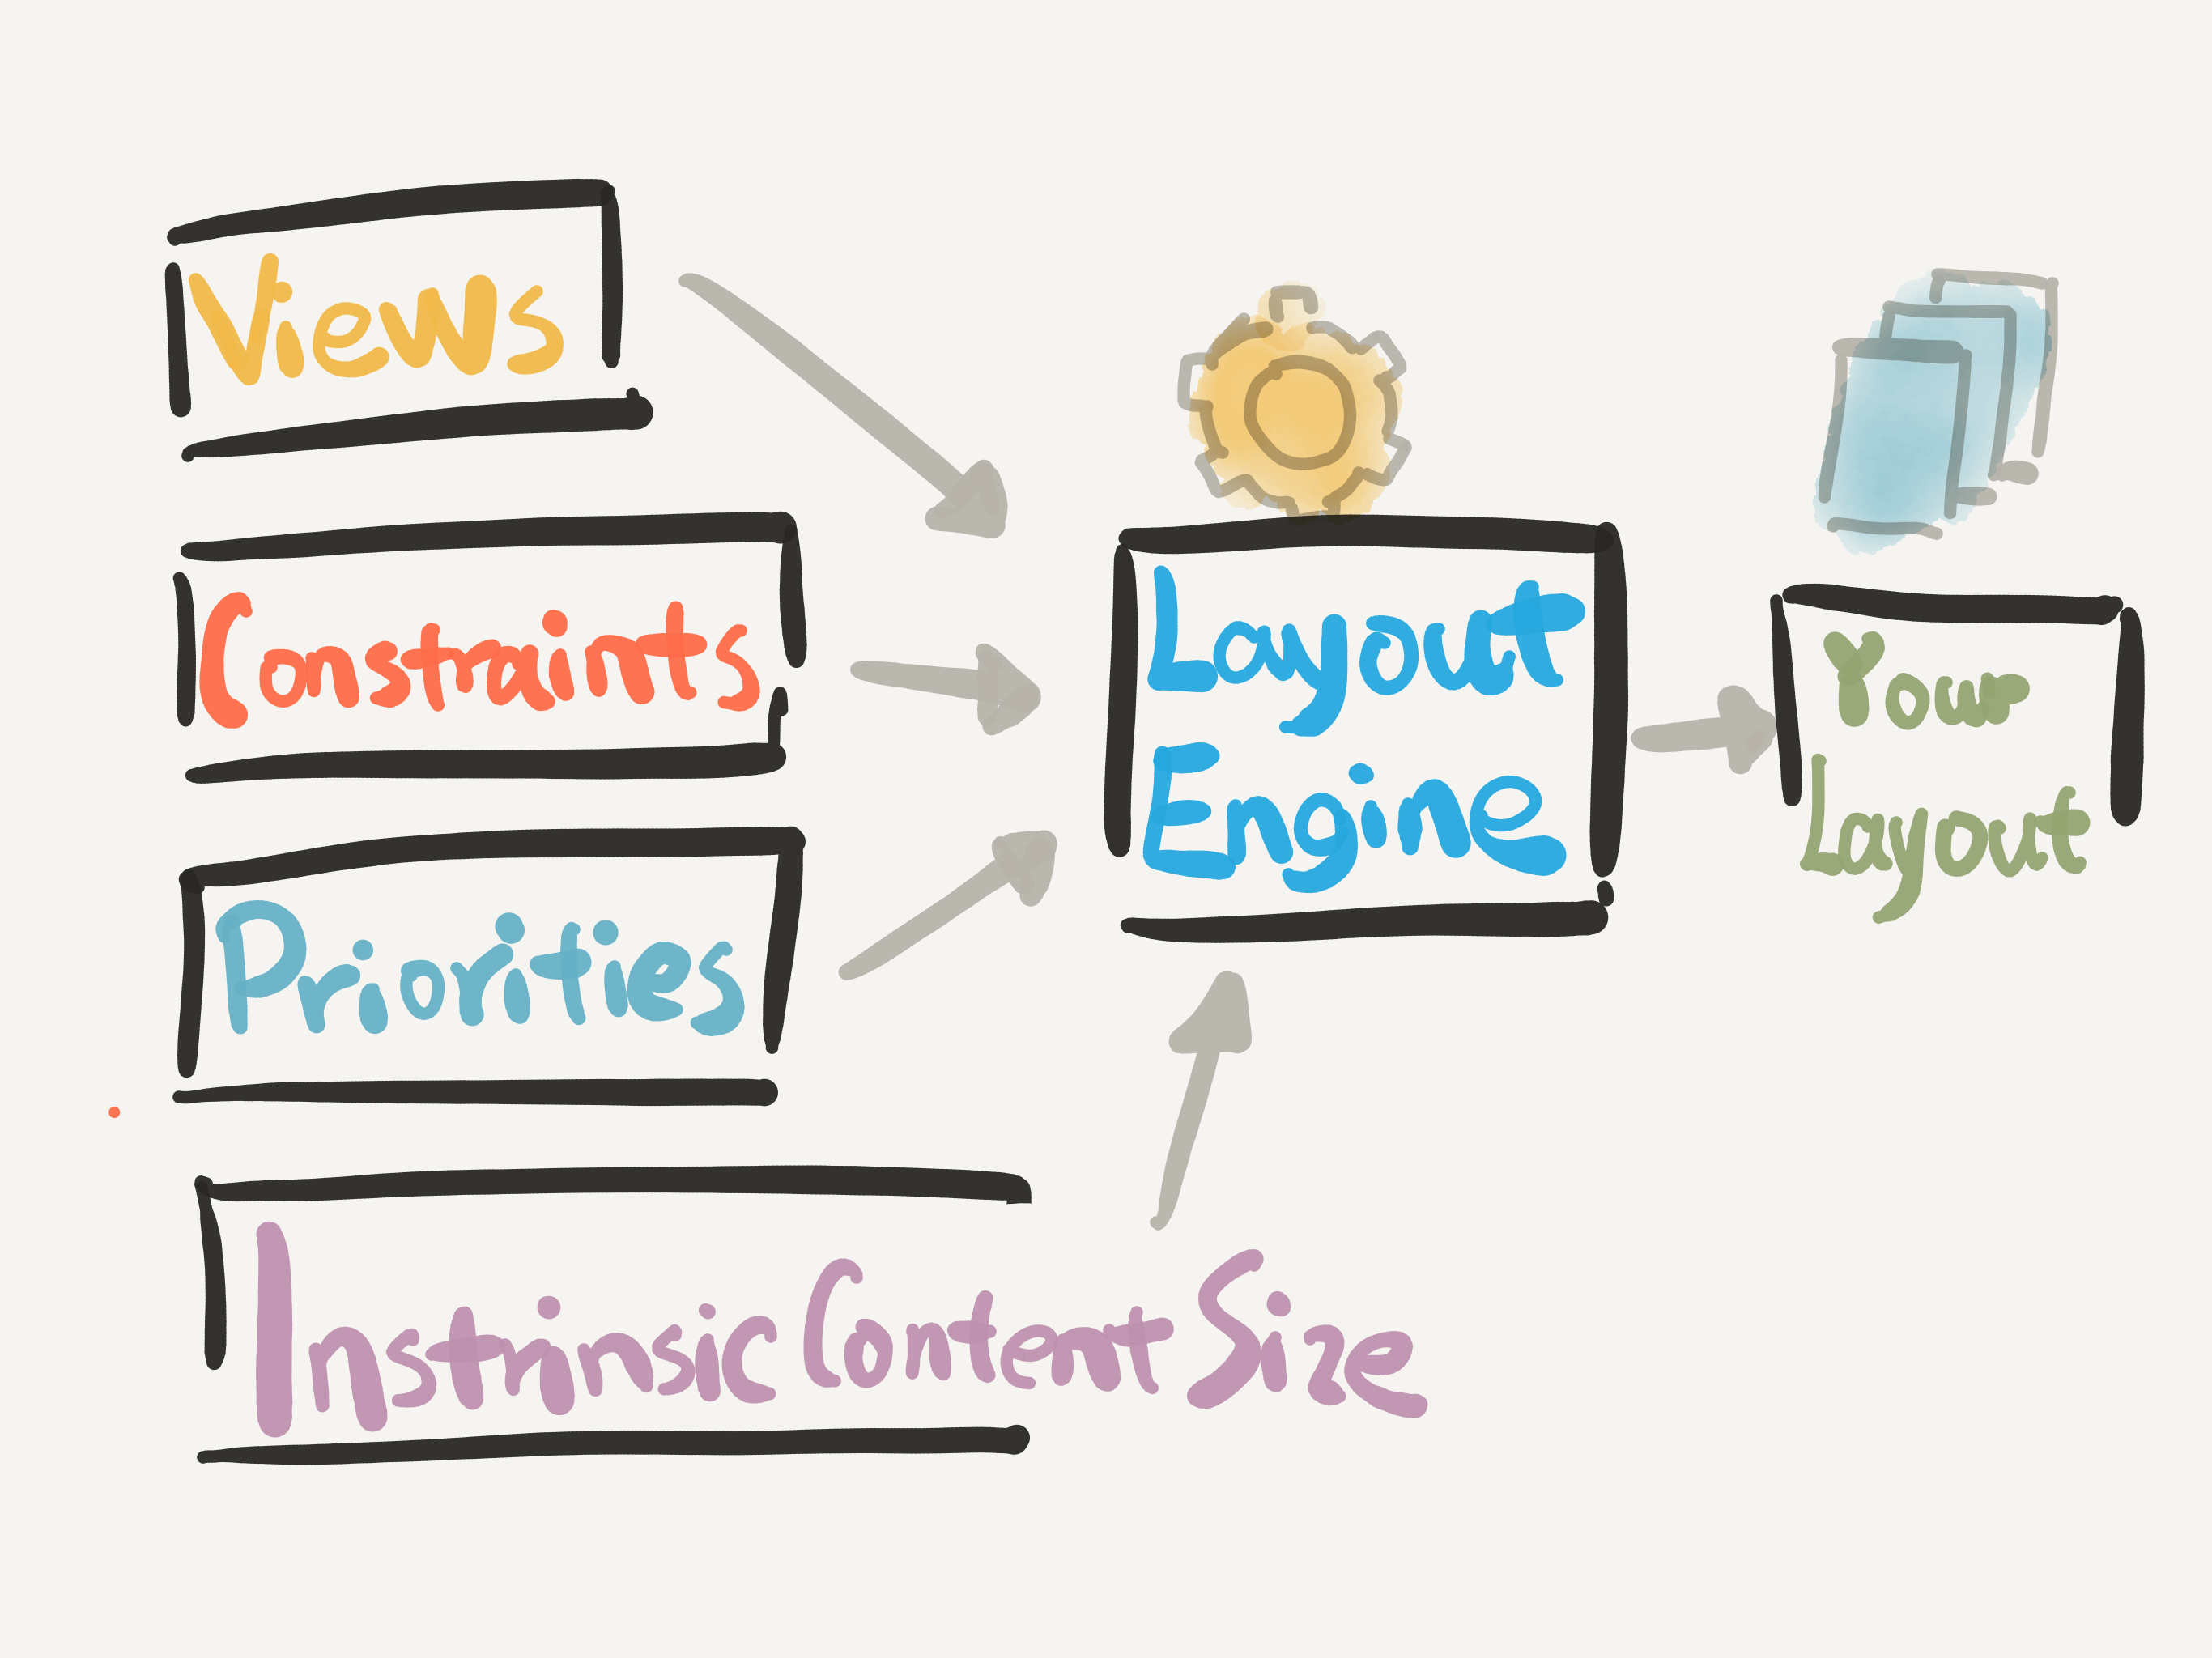 Views
Constraints
Priorities
Instrinsic Content Size
Layout
Engine
Your
Layout